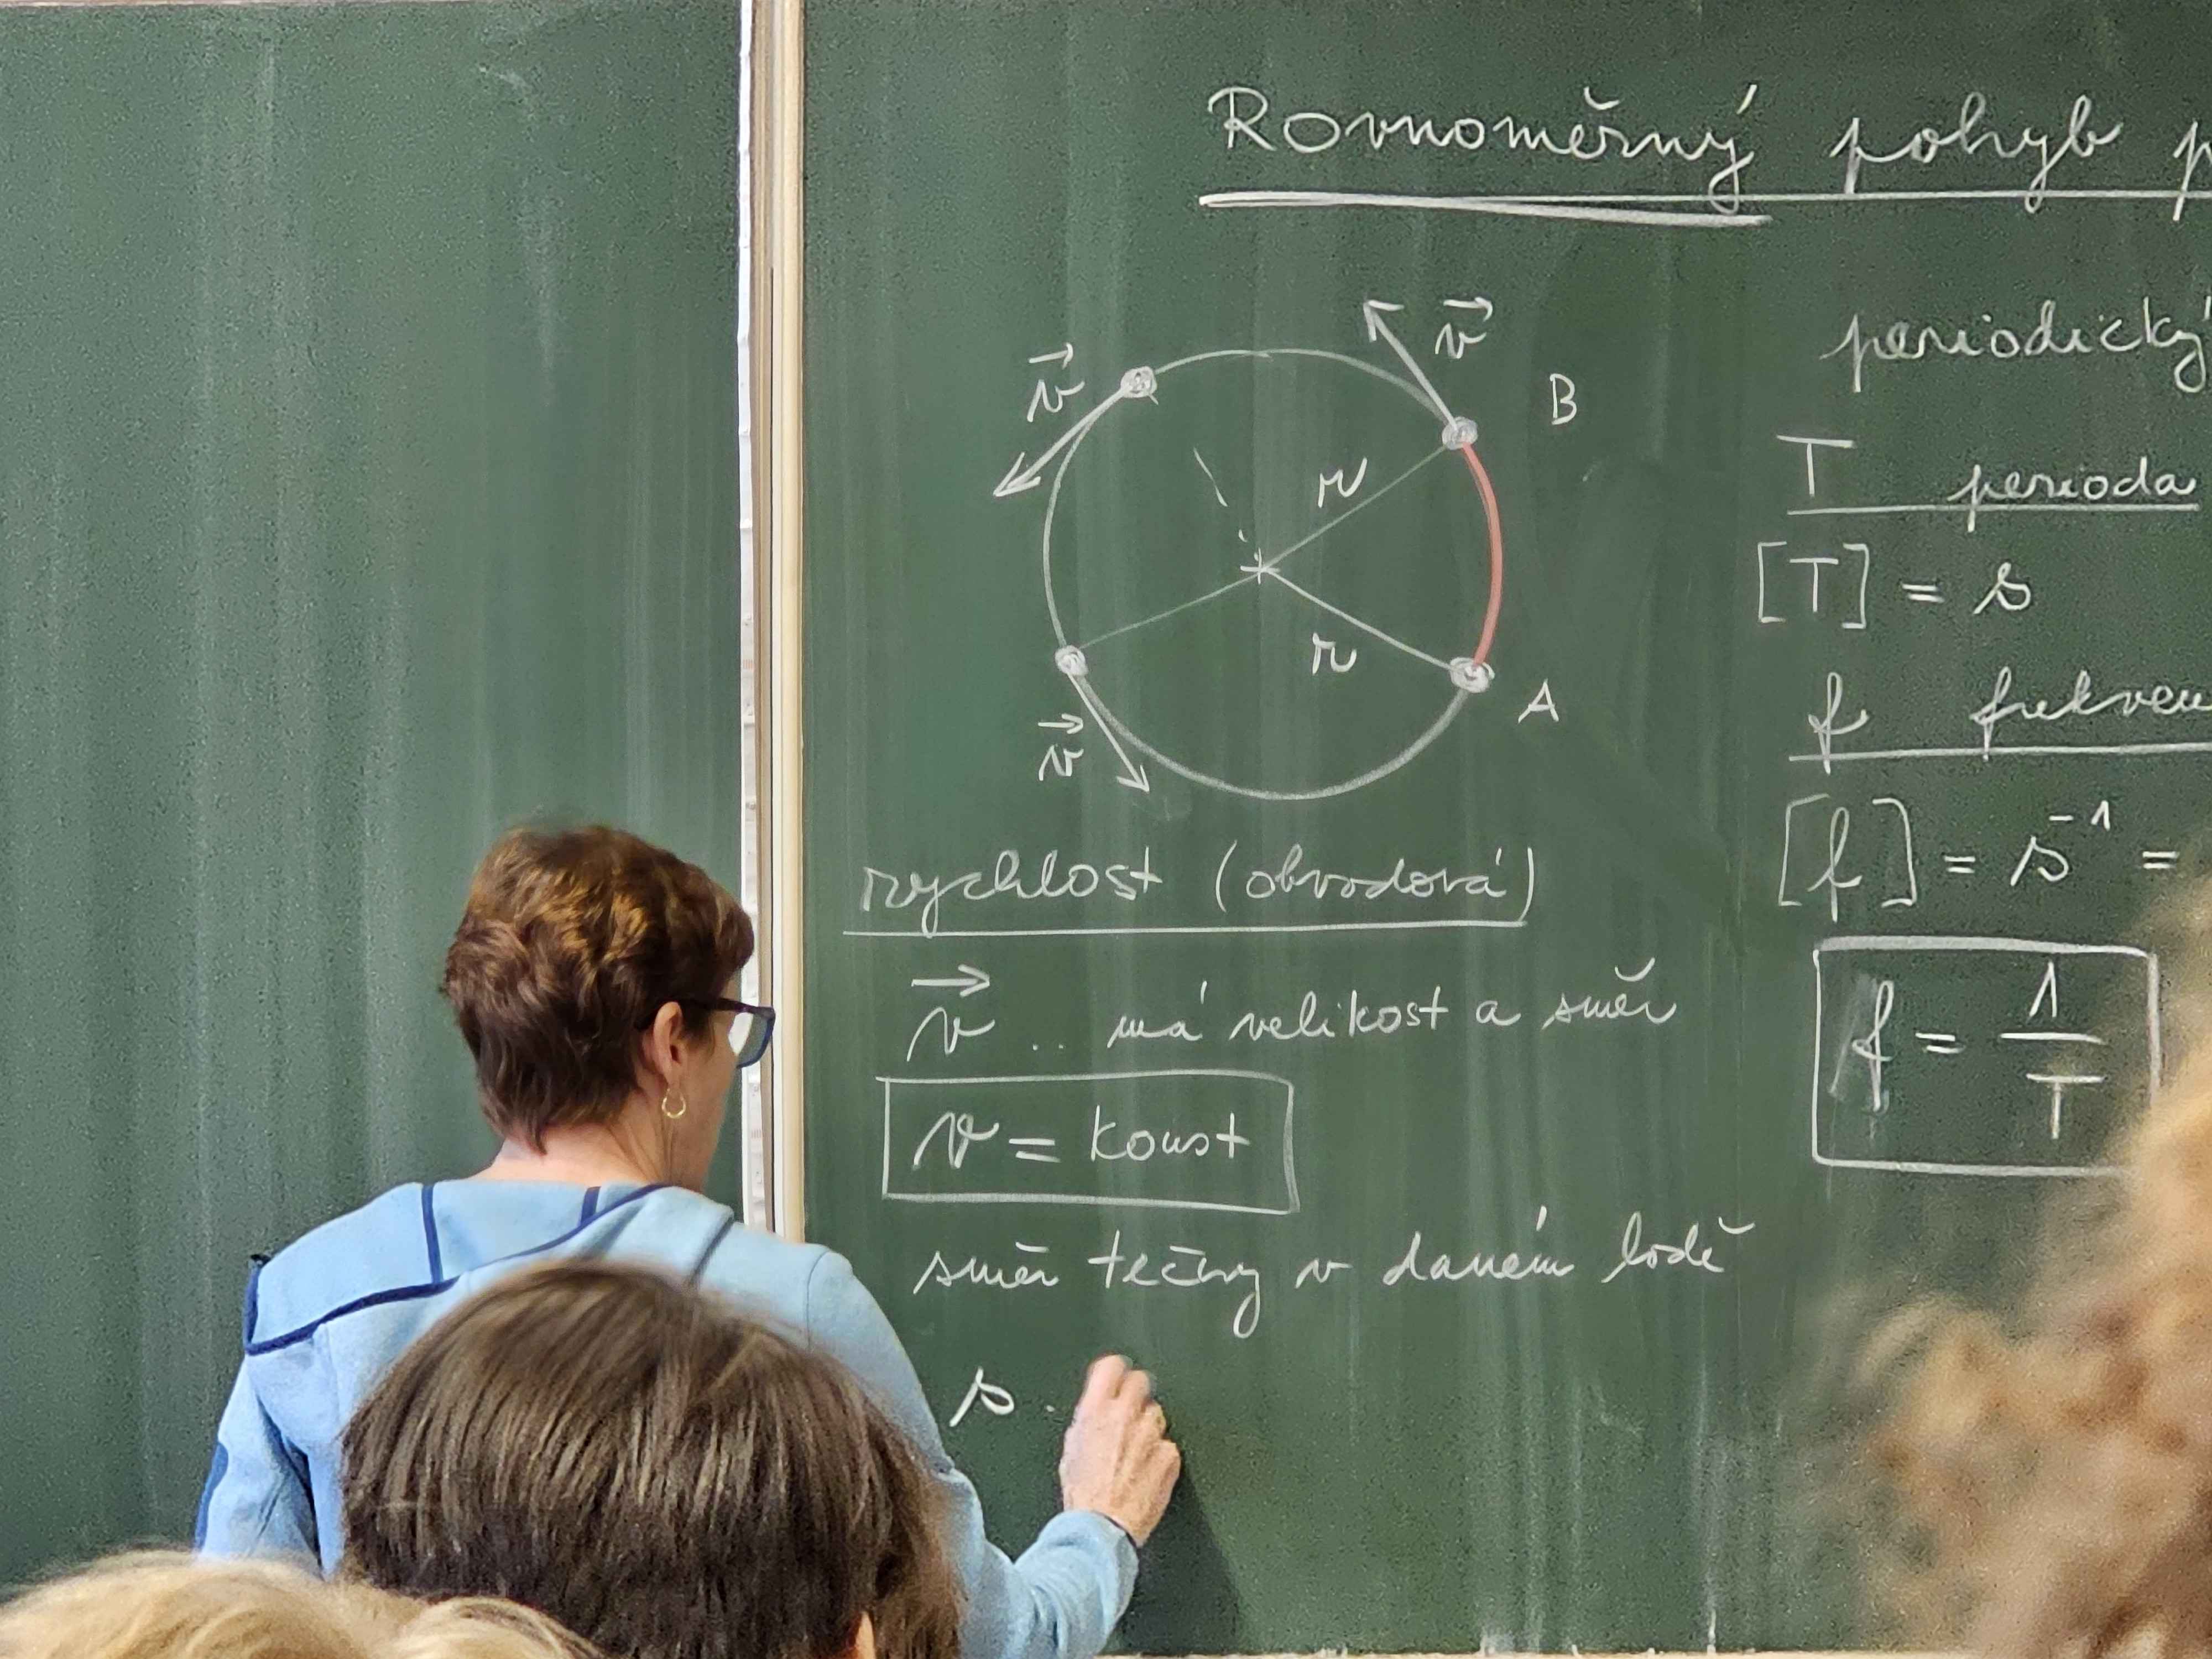 Rovnoměrný pohyb p
v
v
B
r
r
A
v
periodický
T perioda
[T] = s
f frekven
[f] = s⁻¹ =
f = 1/T
rychlost (obvodová)
v .. má velikost a směr
v = konst
směr tečny v daném bodě
s .